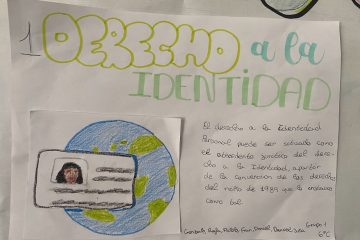 1 DERECHO a la
IDENTIDAD
El derecho a la Identidad
Personal puede ser situado como
el ordenamiento jurídico del dere-
cho a la Identidad, a partir
de la convención de los derechos
del niño de 1989 que lo reconoce
como tal.
Grupo 1
Gonzalo, Daniel
6ºC